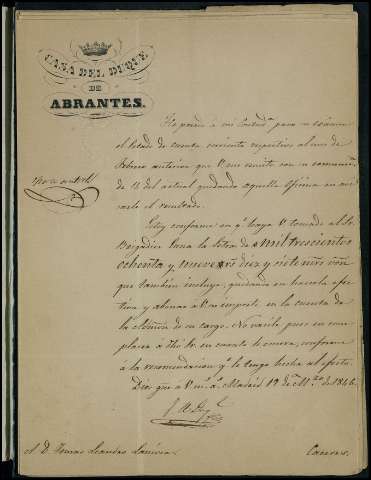 CASA DEL DUQUE
DE
ABRANTES.
He pasado á mi Contadª para su exámen
el Estado de cuenta corriente respectivo al mes de
Febrero anterior que V. me remite con su comunicⁿ
de 11 del actual quedando aquella Oficina en
el resultado.
Estoy conforme en qᵉ haya V. tomado al Sr.
Brigadier la letra de mil trescientos
ochenta y nueve rs diez y siete mrs von
que tambien incluye, quedando en hacerla efec
tiva y abonar á V. su importe en la cuenta de
la Admon de su cargo. No vacile pues en com
placer á dho Sr. en cuanto le ocurra, conforme
á la recomendacion qᵉ le tengo hecha al efecto.
Dios gue á V. m. a. Madrid 19 de Mzo de 1846.
A D. Tomas Leandro
Caceres.